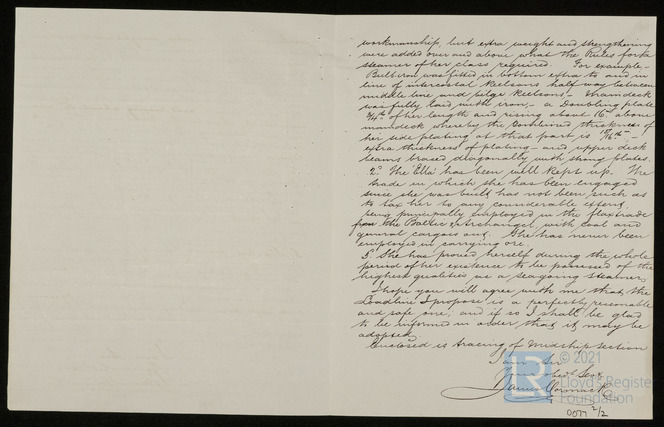 workmanship, but extra weight and strengthening
were added over and above what the Rules for a
steamer of her class required. For example –
Bulb iron was fitted in bottom extra to and in
line of intercostal keelsons half way between
middle line and bilge keelsons – Maindeck
was fully laid with iron, – a Doubling plate
3/4ths of her length and rising about 16" above
maindeck whereby the combined thickness of
her side plating at that part is
extra thickness of plating – and upper deck
beams braced diagonally with strong plates.
2° The Ella has been well kept up. The
trade in which she has been engaged
since she was built has not been such as
to tax her to any considerable extent,
being principally employed in the flax trade
from the Baltic & Archangel, with coal and
general cargoes out. She has never been
employed in carrying ore.
She has proved herself during the whole
period of her existence to be possessed of the
highest qualities as a seagoing Steamer.
I hope you will agree with me that the
Loadline I propose is a perfectly reasonable
and safe one, and if so I shall be glad
to be informed in order that it may be
adopted.
Enclosed is tracing of Midship Section
I am Sir
Your obedt Servt
Cormack
2/2
LR
© 2021
Lloyd's Register
Foundation